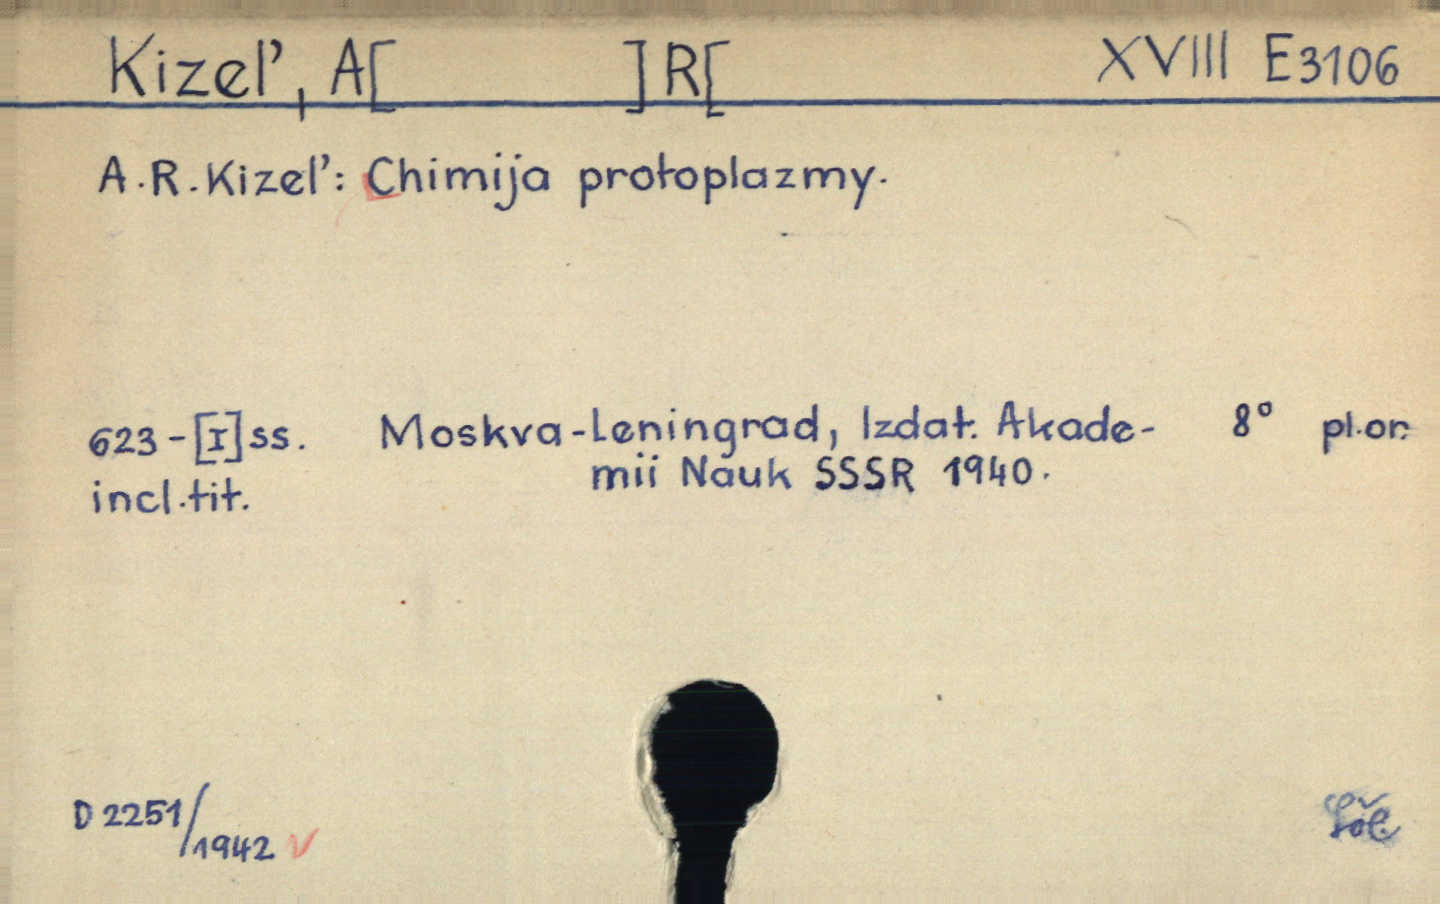 Kizel', A[ ] R[ XVIII E3106
A.R. Kizel': Chimija protoplazmy.
623-[I] ss. Moskva-Leningrad, Izdat. Akade- 8° pl.or.
incl.tit. mii Nauk SSSR 1940.
D 2251/1942